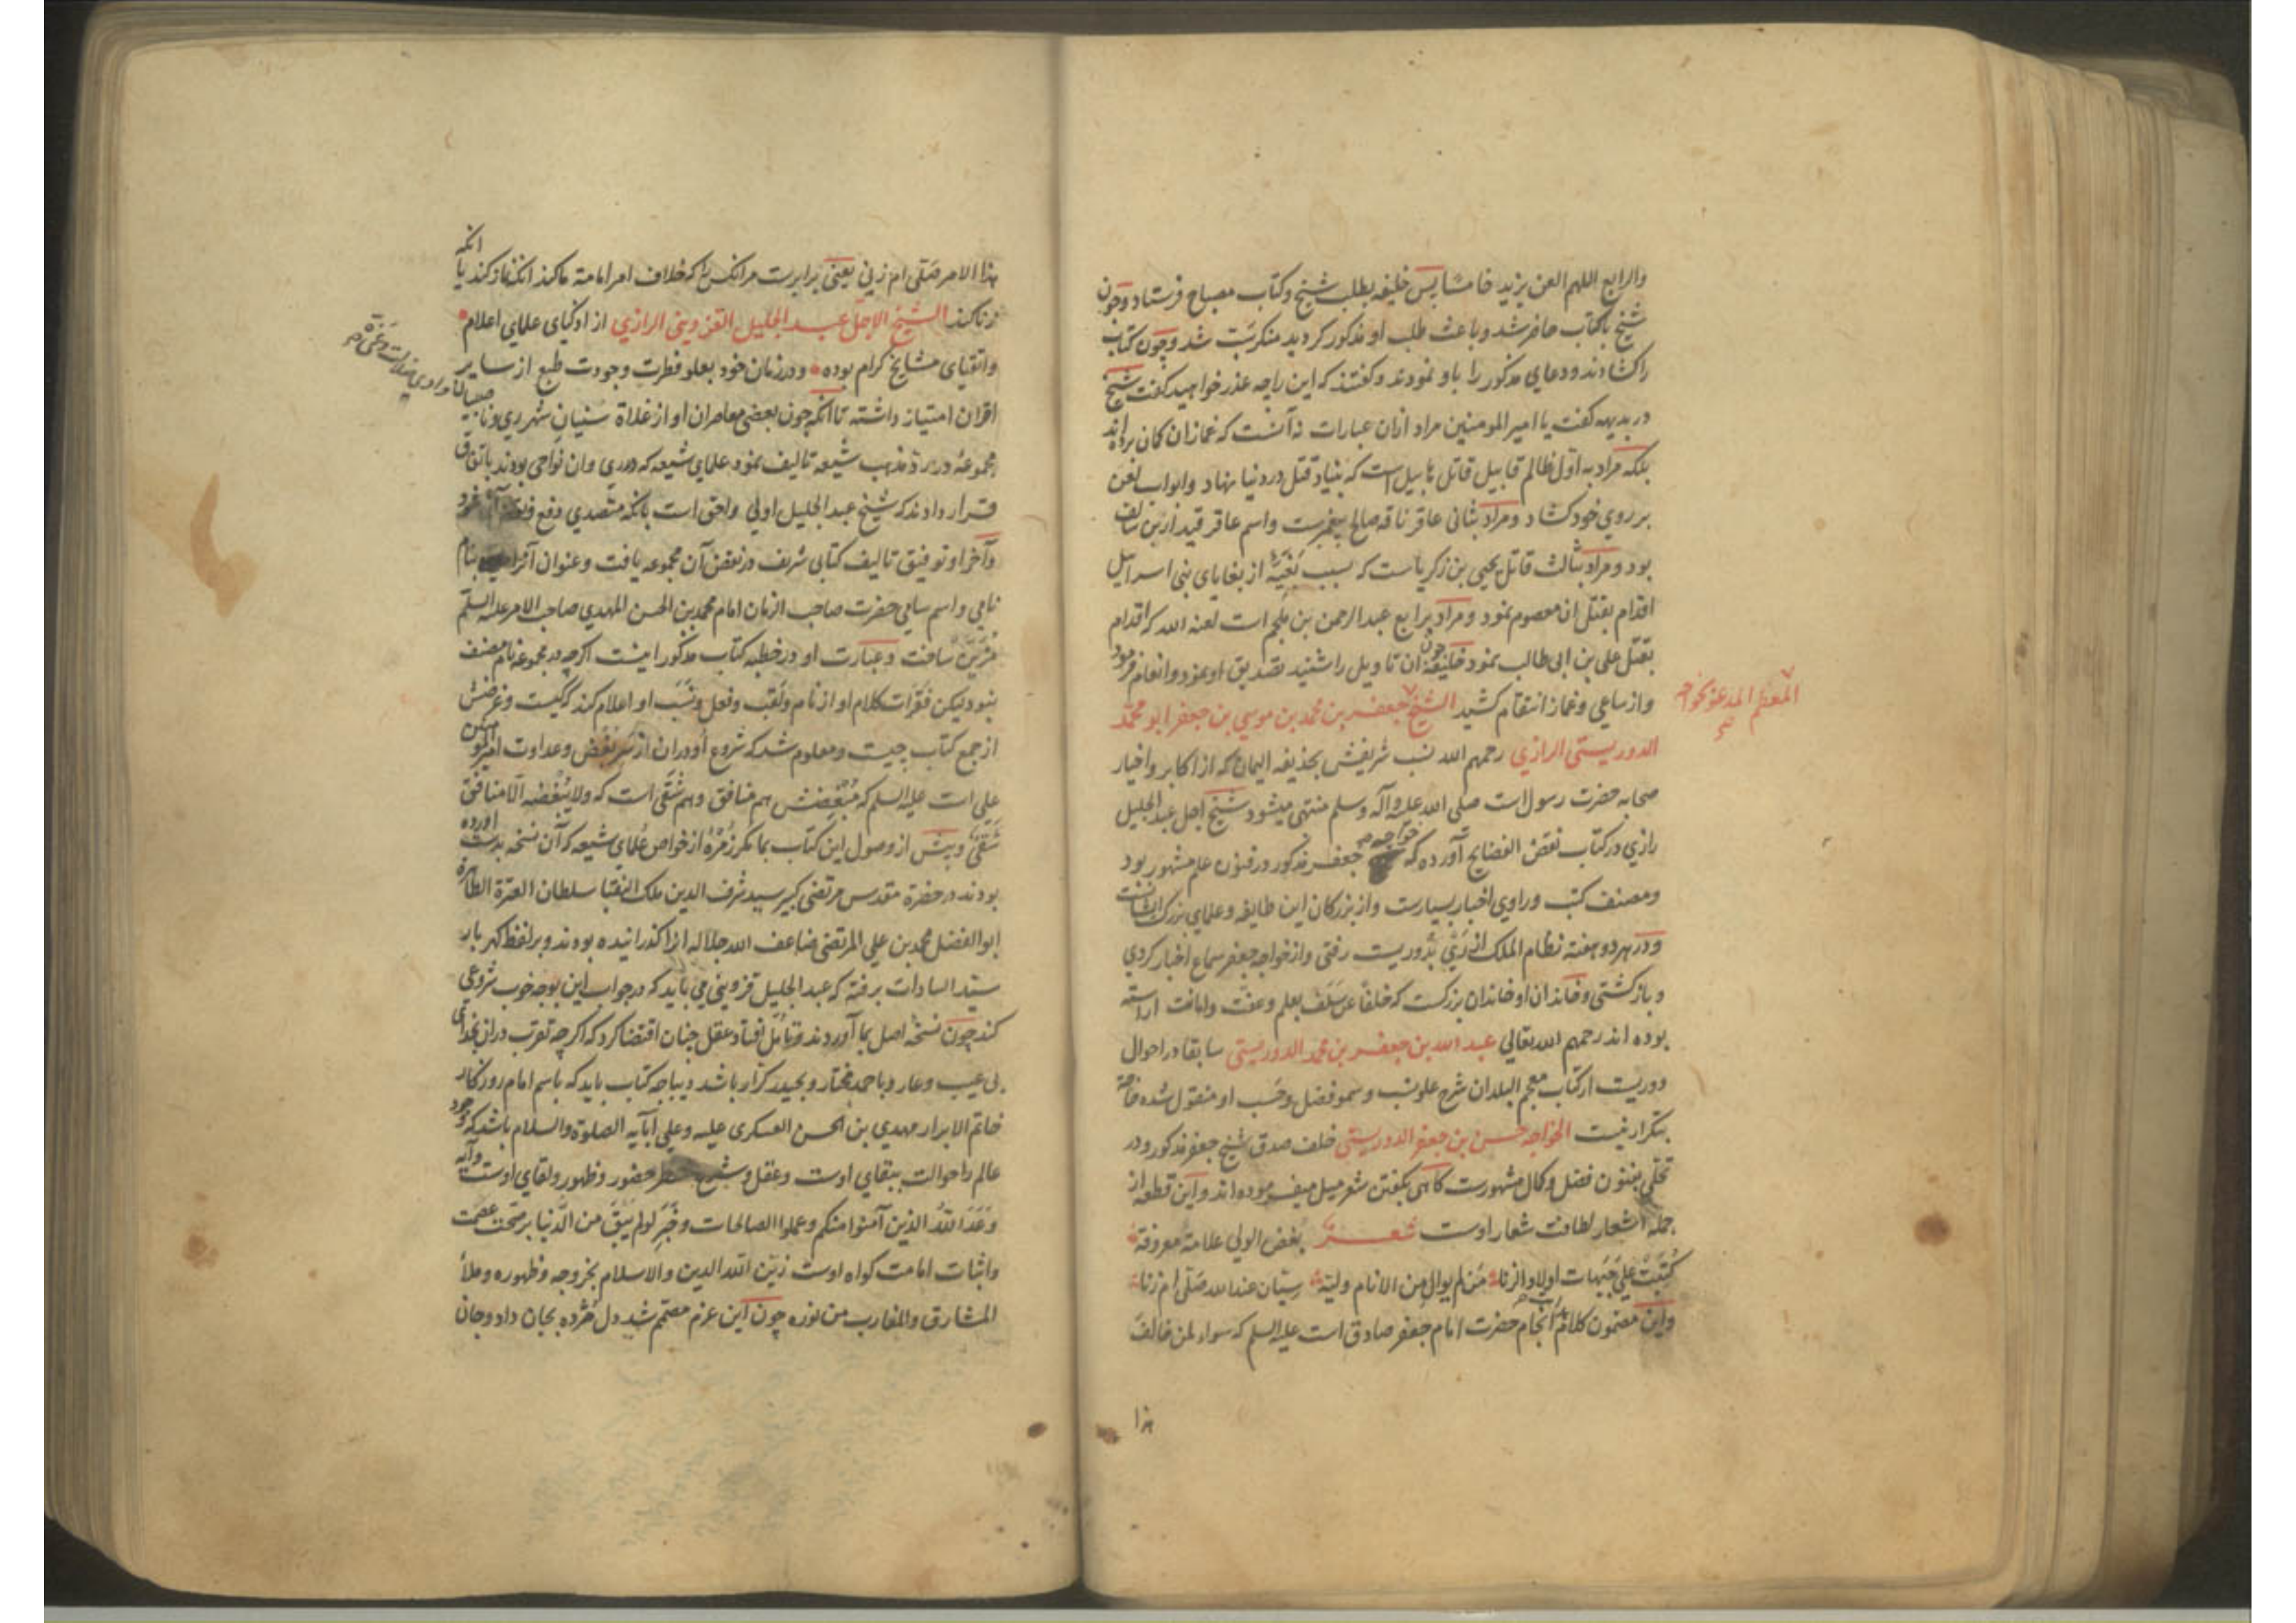 والرابع اللهم العن يزيد خامسا پس خلیفه بطلب شیخ و کتاب مصباح فرستاد و چون
شیخ با کتاب حاضر شد و باعث طلب او مذکور گردید منکر سَبّ شد و چون کتاب
را کشادند و دعای مذکور را باو نمودند و گفتند که این را چه عذر خواهید گفت شیخ
در بدیهه گفت یا امیر المومنین مراد ازان عبارات نه آنست که غمازان گمان برده اند
بلکه مراد به اوّل ظالم قابیل قاتل هابیل است که بنیاد قتل در دنیا نهاد و ابواب لعن
بر روی خود کشاد و مراد بثانی عاقر ناقه صالح پیغمبرست و اسم عاقر قیدار بن سالف
بود و مراد بثالث قاتل یحیی بن زکریاست که بسبب بَغیّه از بغایای بنی اسراییل
اقدام بقتل ان معصوم نمود و مراد برابع عبد الرحمن بن ملجم است لعنه الله که اقدام
بقتل علی بن ابی طالب نمود خلیفه چون ان تاویل را شنید تصدیق او نمود و انعام فرمود
و از ساعی و غماز انتقام کشید الشیخ جعفر بن محمد بن موسی بن جعفر ابو محمد
المعظم المدعو بخواجه
الدوریستی الرازی رحمهم الله نسب شریفش بحذیفه الیمان که از اکابر و اخیار
صحابه حضرت رسول است صلی الله علیه و آله و سلم منتهی میشود شیخ اجل عبد الجلیل
رازی در کتاب نقض الفضایح آورده که خواجه جعفر مذکور در فنون علم مشهور بود
و مصنف کتب و راوی اخبار بسیارست و از بزرکان این طایفه و علمای بزرک ایشانست
و در هر دو هفته نظام الملک از رَی بدوریست رفتی و از خواجه جعفر سماع اخبار کردی
و بازکشتی و خاندان او خاندان بزرکست که خلفاً عن سَلَف بعلم و عفّت و امانت اراسته
بوده اند رحمهم الله تعالی عبد الله بن جعفر بن محمد الدوریستی سابقا در احوال
دوریست از کتاب معجم البلدان شرح علو نسب و سمو فضل و حَسَب او منقول شده حاجة
بتکرار نیست الخواجه حسن بن جعفر الدوریستی خلف صدق شیخ جعفر مذکور و در
تحلّی بفنون فضل و کمال مشهورست کاهی بکفتن شعر میل میفرموده اند و این قطعه از
جمله اشعار لطافت شعار اوست شعر بُغض الولی علامة معروفة
کُتِبَت علی جَبَهات اولاد الزنا مَن لم یوال من الانام ولیّه سیّان عند الله صَلّی ام زنا
و این مضمون کلام انجام حضرت امام جعفر صادق است علیه السلم که سواء لمن خالفَ
هذا
هذا الامر صَلّی ام زنی یعنی برابرست مر انکس را که خلاف امر امامة ما کند انکه نماز کند یا انکه
زنا کند الشیخ الاجل عبد الجلیل القزوینی الرازی از اذکیای علمای اعلام
و اتقیای مشایخ کرام بوده و در زمان خود بعلو فطرت و جودت طبع از سایر
اقران امتیاز داشته تا انکه چون بعضی معاصران او از غلاة سنیان شهر ری و ناصبیان
مجموعه در رد مذهب شیعه تالیف نمود علمای شیعه که در ری و ان نواحی بودند باتفاق
قرار دادند که شیخ عبد الجلیل اولی و احق است بانکه متصدی دفع و نقض آن شود
و آخر او توفیق تالیف کتابی شریف در نقض آن مجموعه یافت و عنوان آنرا بنام
نامی و اسم سامی حضرت صاحب الزمان امام محمد بن الحسن المهدی صاحب الامر علیه السلم
مُزَیّن ساخت و عبارت او در خطبه کتاب مذکور اینست اکرچه در مجموعه نام مصنف
نبود لیکن فقرات کلام او از نام و لقب و فعل و نسَب او اعلام کند که کیست و غرضش
از جمع کتاب چیست و معلوم شد که شروع او دران از سَرِ بُغض و عداوت امیر المومنین
علی است علیه السلم که مُبغِضش هم منافق و هم شَقی است که و لا یُبغِضه الّا منافق
شَقیّ و پیش از وصول این کتاب بما مکر زُمرهٔ از خواص عُلمای شیعه که آن نسخه بدست اورده
بودند در حضرة مقدس مرتضی کبیر سید شرف الدین ملک النقبا سلطان العترة الطاهرة
ابو الفضل محمد بن علی المرتضی ضاعف الله جلاله انرا کذرانیده بودند و بر لفظ کهربار
سیّد السادات برفته که عبد الجلیل قزوینی می باید که در جواب این بوجه خوب شروعی
کند چون نسخهٔ اصل بما آوردند و تامّل افتاد عقل چنان اقتضا کرد که اکرچه تقرب دران بخدای
بی عیب و عار و باحمد مختار و بحیدر کرّار باشد دیباجه کتاب باید که باسم امام روزکار
خاتم الابرار مهدی بن الحسن العسکری علیه و علی آبآیه الصلوة و السلام باشد که وجود
عالم را حوالت ببقای اوست و عقل و شرع منتظر حضور و ظهور و لقای اوست و آیه
وَعَدَ اللهُ الذین آمنوا منکم و عملوا الصالحات و خَبَرِ لو لم یَبقَ من الدّنیا بر صحّت عصمت
و اثبات امامت کواه اوست زَیّن الله الدین و الاسلام بخروجه و ظهوره و ملأ
المشارق و المغارب من نوره چون این عزم مصمّم شد دل مُژده بجان داد و جان